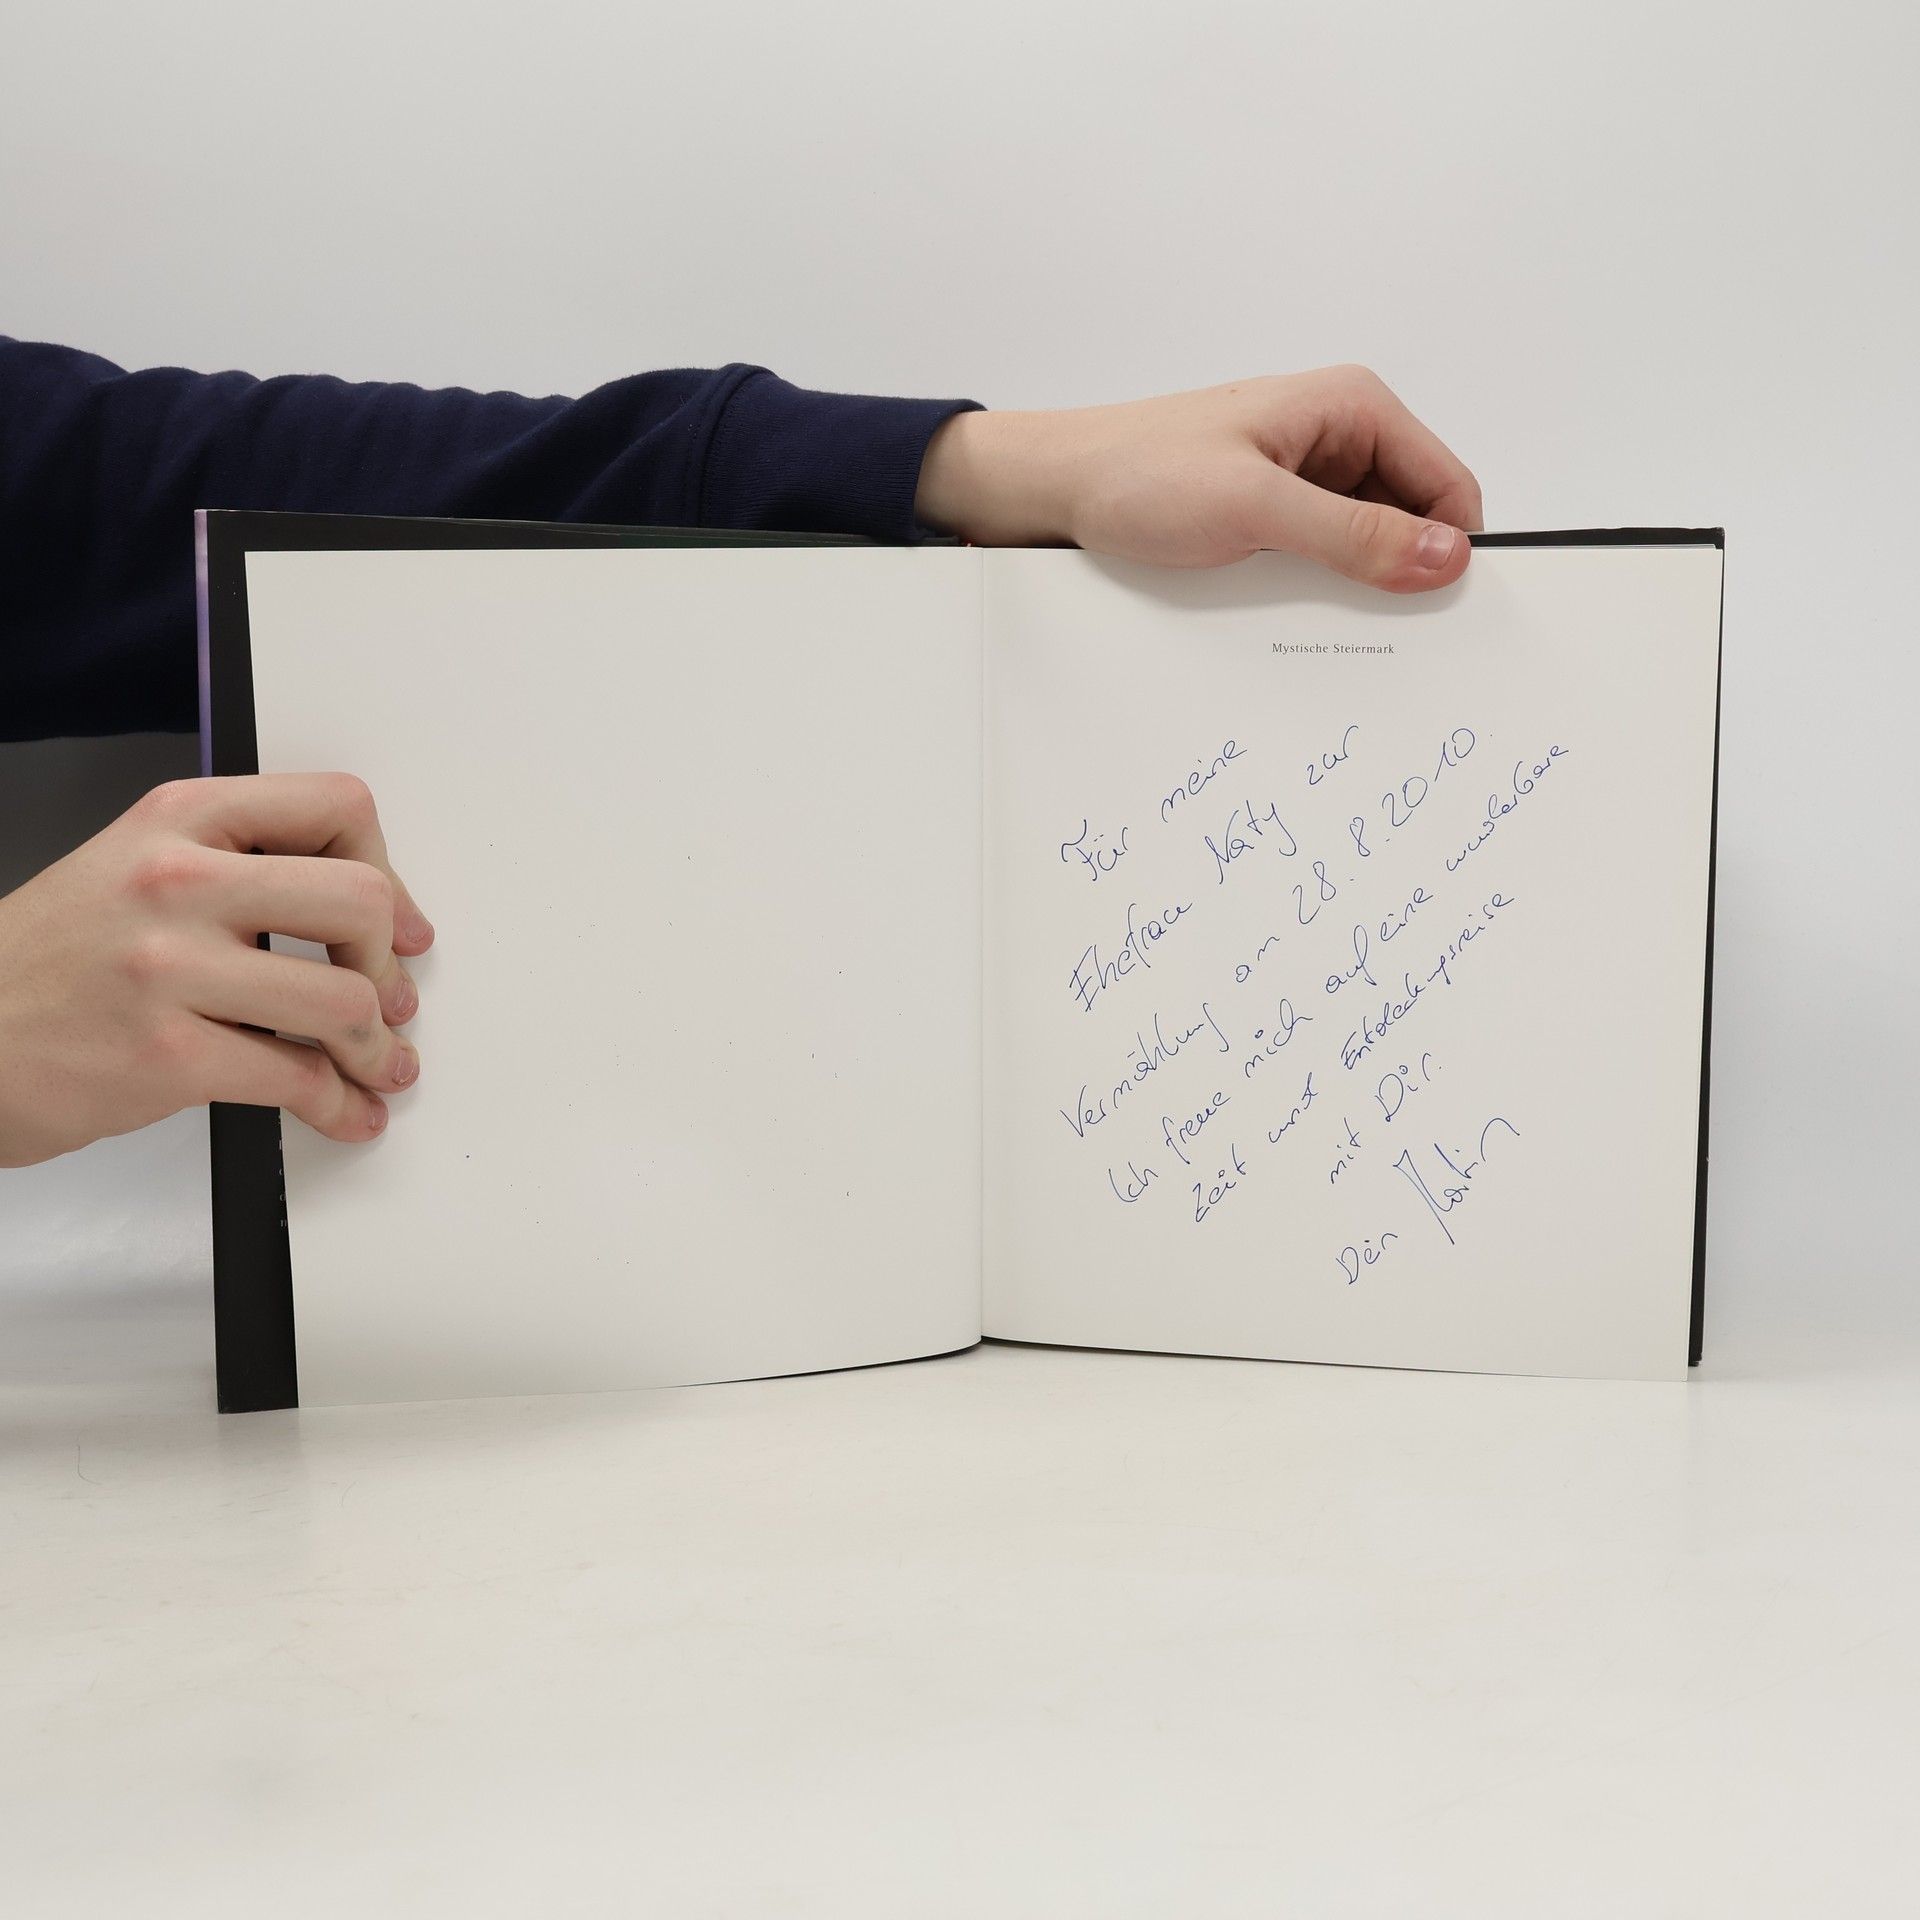 Mystische Steiermark
Für meine
Ehefrau Naty zur
Vermählung am 28.8.2010.
Ich freue mich auf eine wunderbare
Zeit und Entdeckungsreise
mit Dir.
Dein Martin